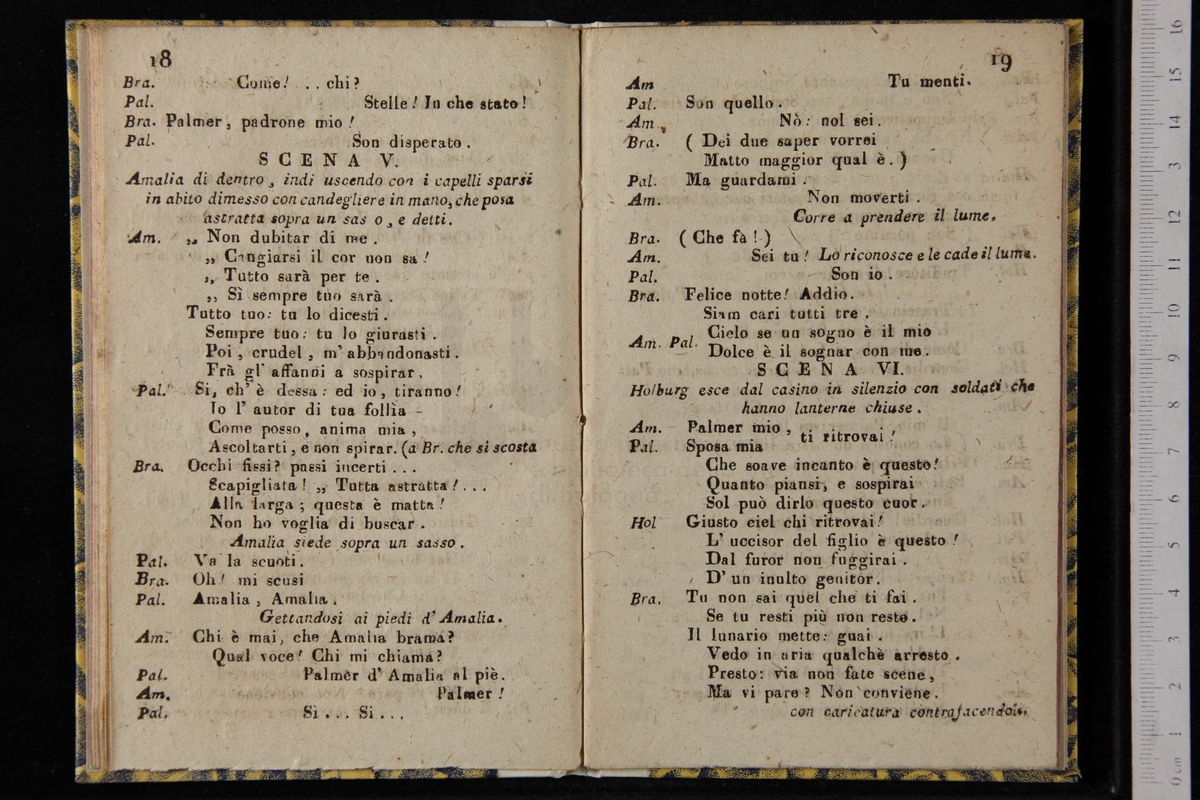 18
Bra. Come! . . chi?
Pal. Stelle! In che stato!
Bra. Palmer, padrone mio!
Pal. Son disperato.
SCENA V.
Amalia di dentro, indi uscendo con i capelli sparsi
in abito dimesso con candegliere in mano, che posa
astratta sopra un sas o, e detti.
Am. „ Non dubitar di me.
„ Cangiarsi il cor non sa!
„ Tutto sarà per te.
„ Sì sempre tuo sarà.
Tutto tuo: tu lo dicesti.
Sempre tuo: tu lo giurasti.
Poi, crudel, m' abbandonasti.
Frà gl' affanni a sospirar.
Pal. Si, ch' è dessa: ed io, tiranno!
Io l' autor di tua follìa -
Come posso, anima mia,
Ascoltarti, e non spirar. (a Br. che si scosta
Bra. Occhi fissi? passi incerti . . .
Scapigliata! „ Tutta astratta! . . .
Alla larga; questa è matta!
Non ho voglia di buscar.
Amalia siede sopra un sasso.
Pal. Va la scuoti.
Bra. Oh! mi scusi
Pal. Amalia, Amalia.
Gettandosi ai piedi d' Amalia.
Am. Chi è mai, che Amalia brama?
Qual voce! Chi mi chiama?
Pal. Palmèr d' Amalia al piè.
Am. Palmer!
Pal. Sì . . . Si . . .
19
Am Tu menti.
Pal. Son quello.
Am. Nò: nol sei.
Bra. ( Dei due saper vorrei
Matto maggior qual è. )
Pal. Ma guardami.
Am. Non moverti.
Corre a prendere il lume.
Bra. ( Che fà! )
Am. Sei tu! Lo riconosce e le cade il lume.
Pal. Son io.
Bra. Felice notte! Addio.
Siam cari tutti tre.
Am. Pal. Cielo se un sogno è il mio
Dolce è il sognar con me.
SCENA VI.
Holburg esce dal casino in silenzio con soldati che
hanno lanterne chiuse.
Am. Palmer mio, ti ritrovai!
Pal. Sposa mia
Che soave incanto è questo!
Quanto piansi, e sospirai
Sol può dirlo questo cuor.
Hol Giusto ciel chi ritrovai!
L' uccisor del figlio è questo!
Dal furor non fuggirai.
D' un inulto genitor.
Bra. Tu non sai quel che ti fai.
Se tu resti più non resto.
Il lunario mette: guai.
Vedo in aria qualchè arresto.
Presto: via non fate scene,
Ma vi pare? Non conviene.
con caricatura contrafacendoli.
0 cm 1 2 3 4 5 6 7 8 9 10 11 12 13 14 15 16